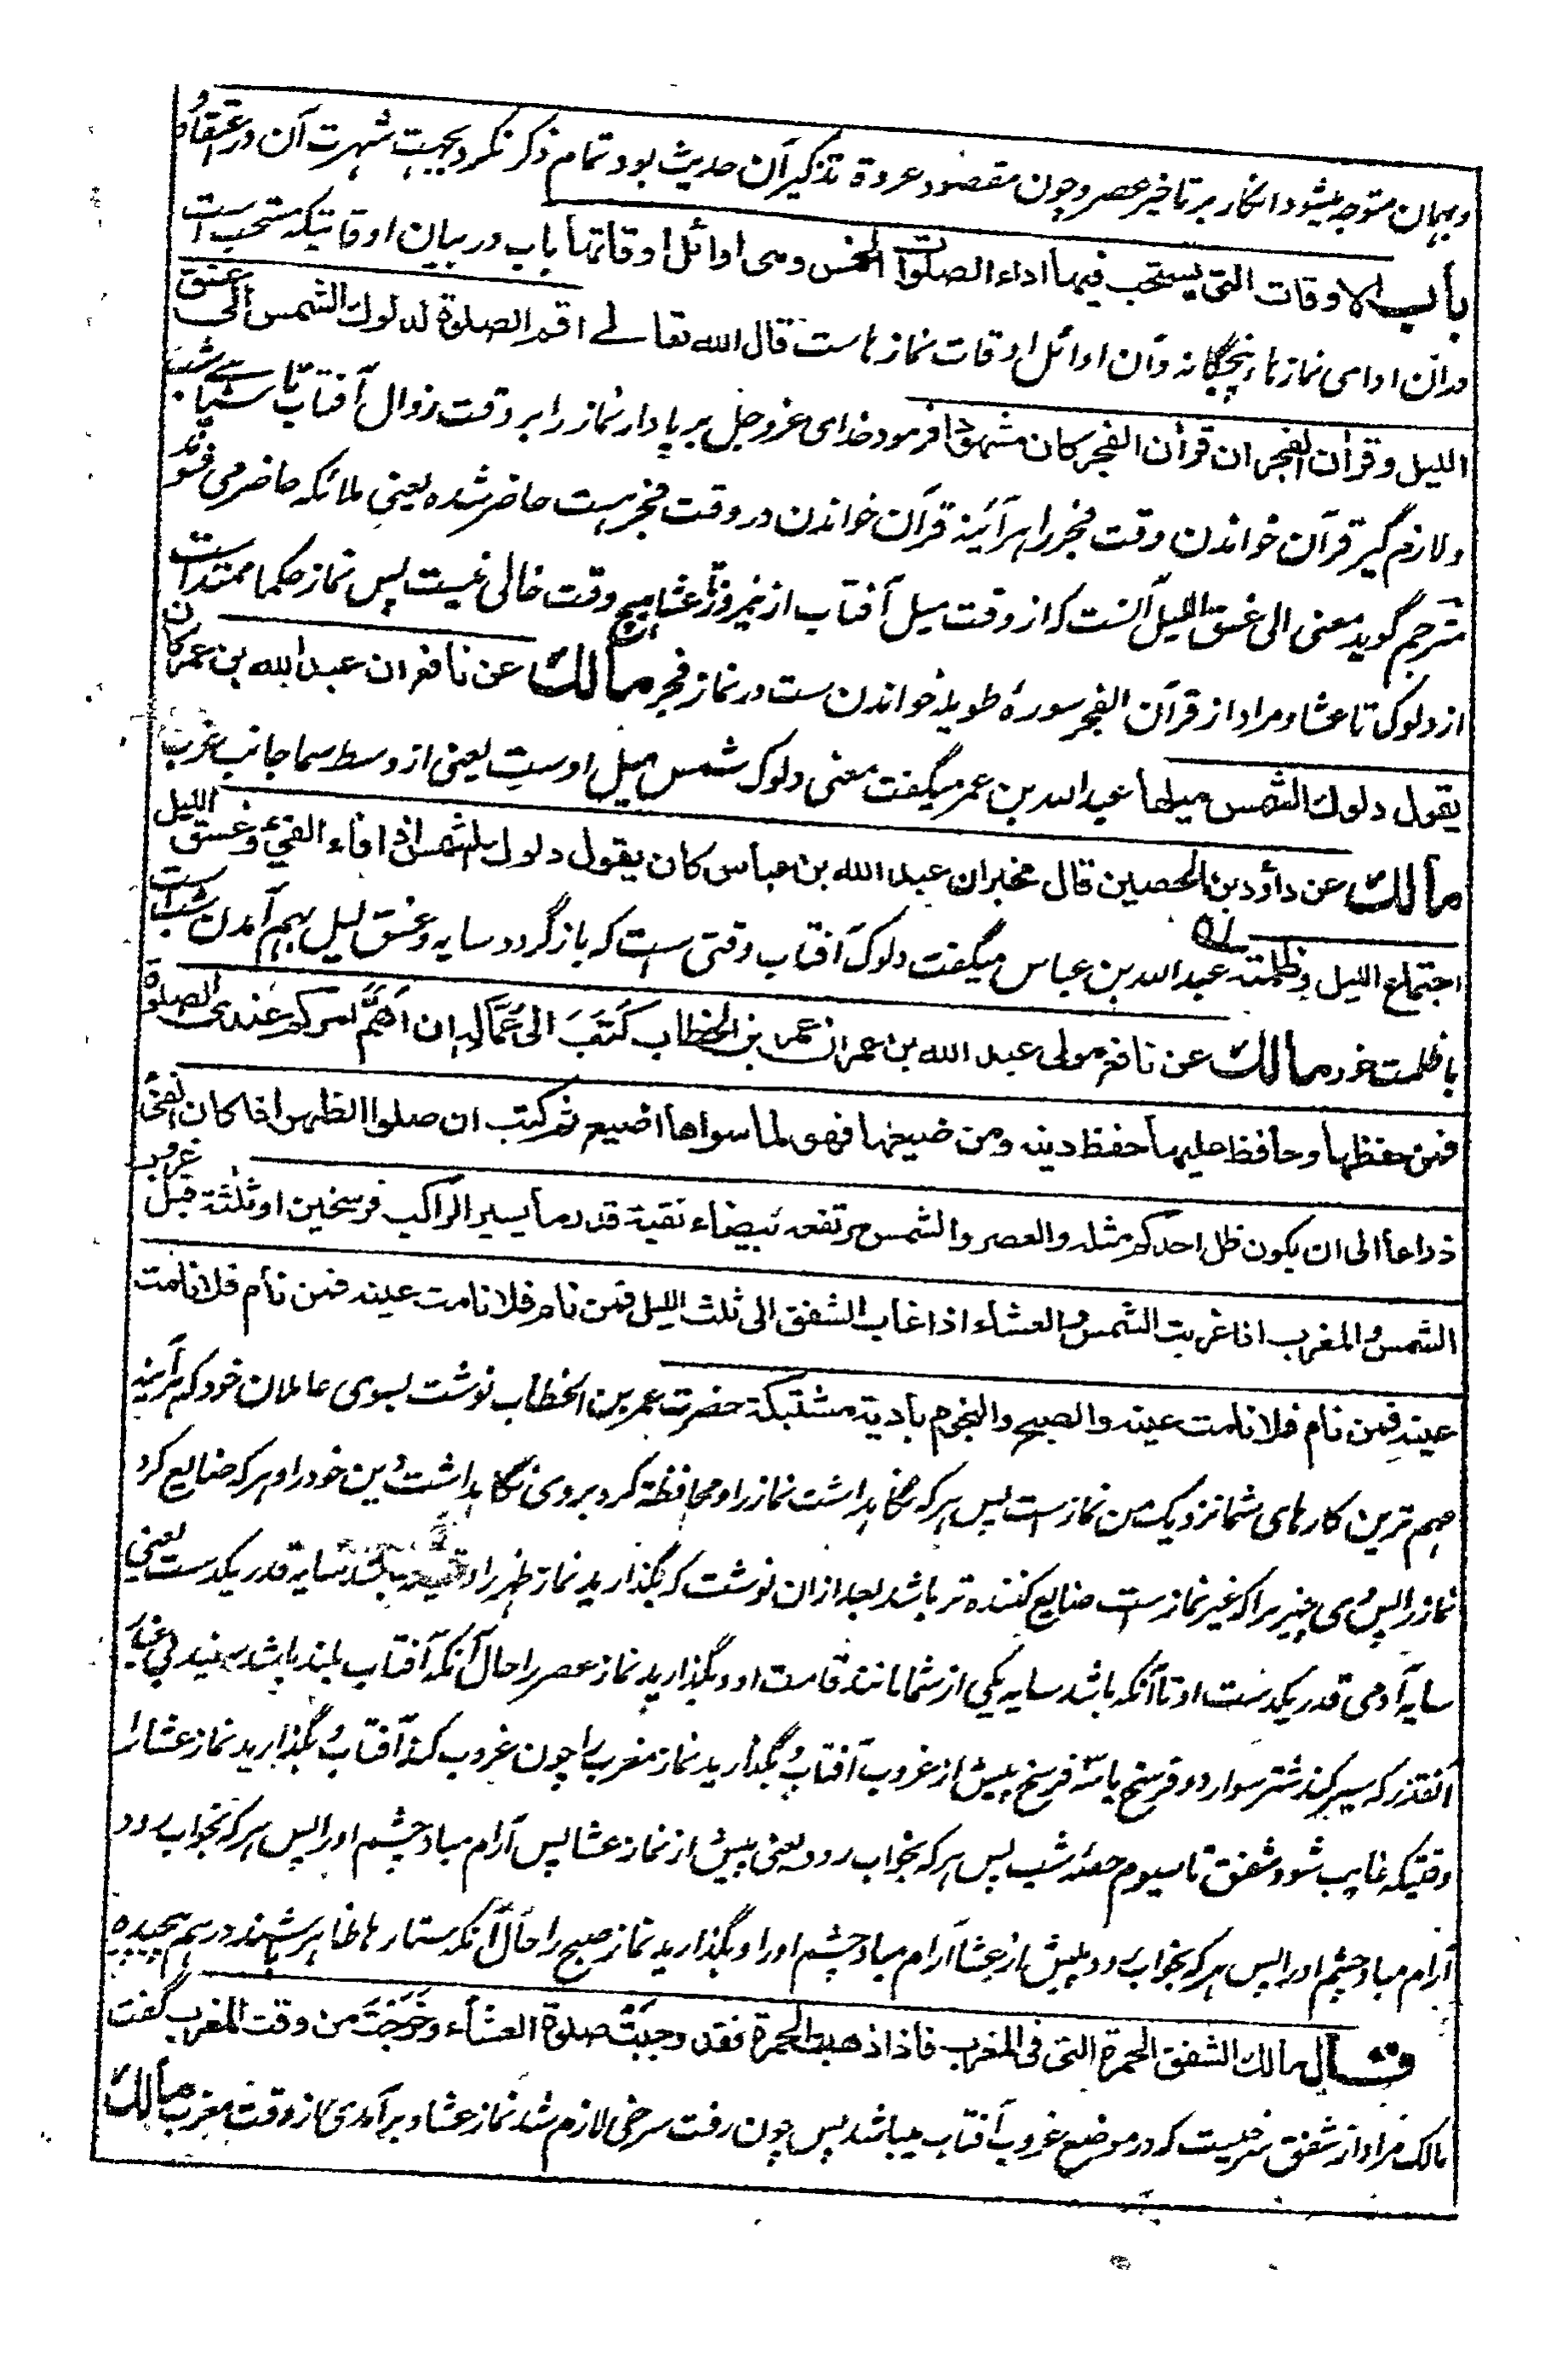 وبهمان متوجه میشود انکار بر تاخیر عصر و چون مقصود عروة تذکیر آن حدیث بود تمام ذکر نکرد بجهت شهرت آن در
باب الاوقات التی یستحب فیها اداء الصلوات الخمس وهی اوائل اوقاتها باب در بیان اوقاتیکه مستحب است
دران ادای نمازهاء پنجگانه وآن اوائل اوقات نمازهاست قال الله تعالے اقم الصلوة لدلوك الشمس الی غسق
اللیل وقرآن الفجر ان قرآن الفجر کان مشهودا فرمود خدای عزوجل برپا دار نماز را بر وقت زوال آفتاب تا سیاهے شب
ولازم گیر قرآن خواندن وقت فجر را هرآئینه قرآن خواندن در وقت فجر هست حاضر شده یعنی ملائکه حاضر می شوند
مترجم گوید معنی الی غسق اللیل آنست که از وقت میل آفتاب از نیمروز تا عشا هیچ وقت خالی نیست پس نماز حکما ممتد است
از دلوک تا عشا ومراد از قرآن الفجر سورهٔ طویله خواندن ست در نماز فجر مالك عن نافع ان عبد الله بن عمر کان
یقول دلوك الشمس میلها عبد الله بن عمر میگفت معنی دلوک شمس میل اوست یعنی از وسط سما جانب غرب
مالك عن داؤد بن الحصین قال مخبر ان عبد الله بن عباس کان یقول دلوك الشمس اذا فاء الفئ وغسق اللیل
اجتماع اللیل وظلمته عبد الله بن عباس میگفت دلوک آفتاب وقتی ست که باز گردد سایه وغسق لیل بهم آمدن شب است
با ظلمت خود مالك عن نافع مولی عبد الله بن عمر ان عمر بن الخطاب کَتَبَ الی عُمَّالِه ان اَهَمَّ امرکم عندی الصلوة
فمن حفظها وحافظ علیها حفظ دینه ومن ضیعها فهو لما سواها اضیع ثم کتب ان صلوا الظهر اذا کان الفئ
ذراعا الی ان یکون ظل احدکم مثله والعصر والشمس مرتفعه بیضاء نقیة قدر ما یسیر الراکب فرسخین او ثلثة قبل غروب
الشمس والمغرب اذا غربت الشمس والعشاء اذا غاب الشفق الی ثلث اللیل فمن نام فلا نامت عینه فمن نام فلا نامت
عینه فمن نام فلا نامت عینه والصبح والنجوم بادیة مشتبکة حضرت عمر بن الخطاب نوشت بسوی عاملان خود که هرآئینه
مهم ترین کارهای شما نزدیک من نماز ست پس هرکه نگاهداشت نماز را ومحافظة کرد بروی نگاهداشت دین خود را وهرکه ضایع کرد
نماز را پس وی چیزیرا که غیر نماز ست ضایع کننده تر باشد بعد ازان نوشت که بگذارید نماز ظهر را وقتیکه باشد سایه قدر یکدست یعنی
سایه آدمی قدر یکدست او تا آنکه باشد سایه یکی از شما مانند قامت او وبگذارید نماز عصر را حال آنکه آفتاب بلند باشد سفید بی غبار
آنقدر که سیر کند شتر سوار دو فرسخ یا سه فرسخ پیش از غروب آفتاب وبگذارید نماز مغرب را چون غروب کند آفتاب وبگذارید نماز عشا را
وقتیکه غایب شود شفق تا سیوم حصهٔ شب پس هرکه بخواب رود یعنی پیش از نماز عشا پس آرام مباد چشم او را پس هرکه بخواب رود
آرام مباد چشم او را پس هرکه بخواب رود پیش از عشا آرام مباد چشم او را وبگذارید نماز صبح را حال آنکه ستارها ظاهر باشند در هم پیچیده
قال مالك الشفق الحمرة التی فی المغرب فاذا ذهبت الحمرة فقد وجبت صلوة العشاء وخرجت من وقت المغرب گفت
مالک مراد از شفق سرخیست که در موضع غروب آفتاب میباشد پس چون رفت سرخی لازم شد نماز عشا وبرآمدی از وقت مغرب مالك